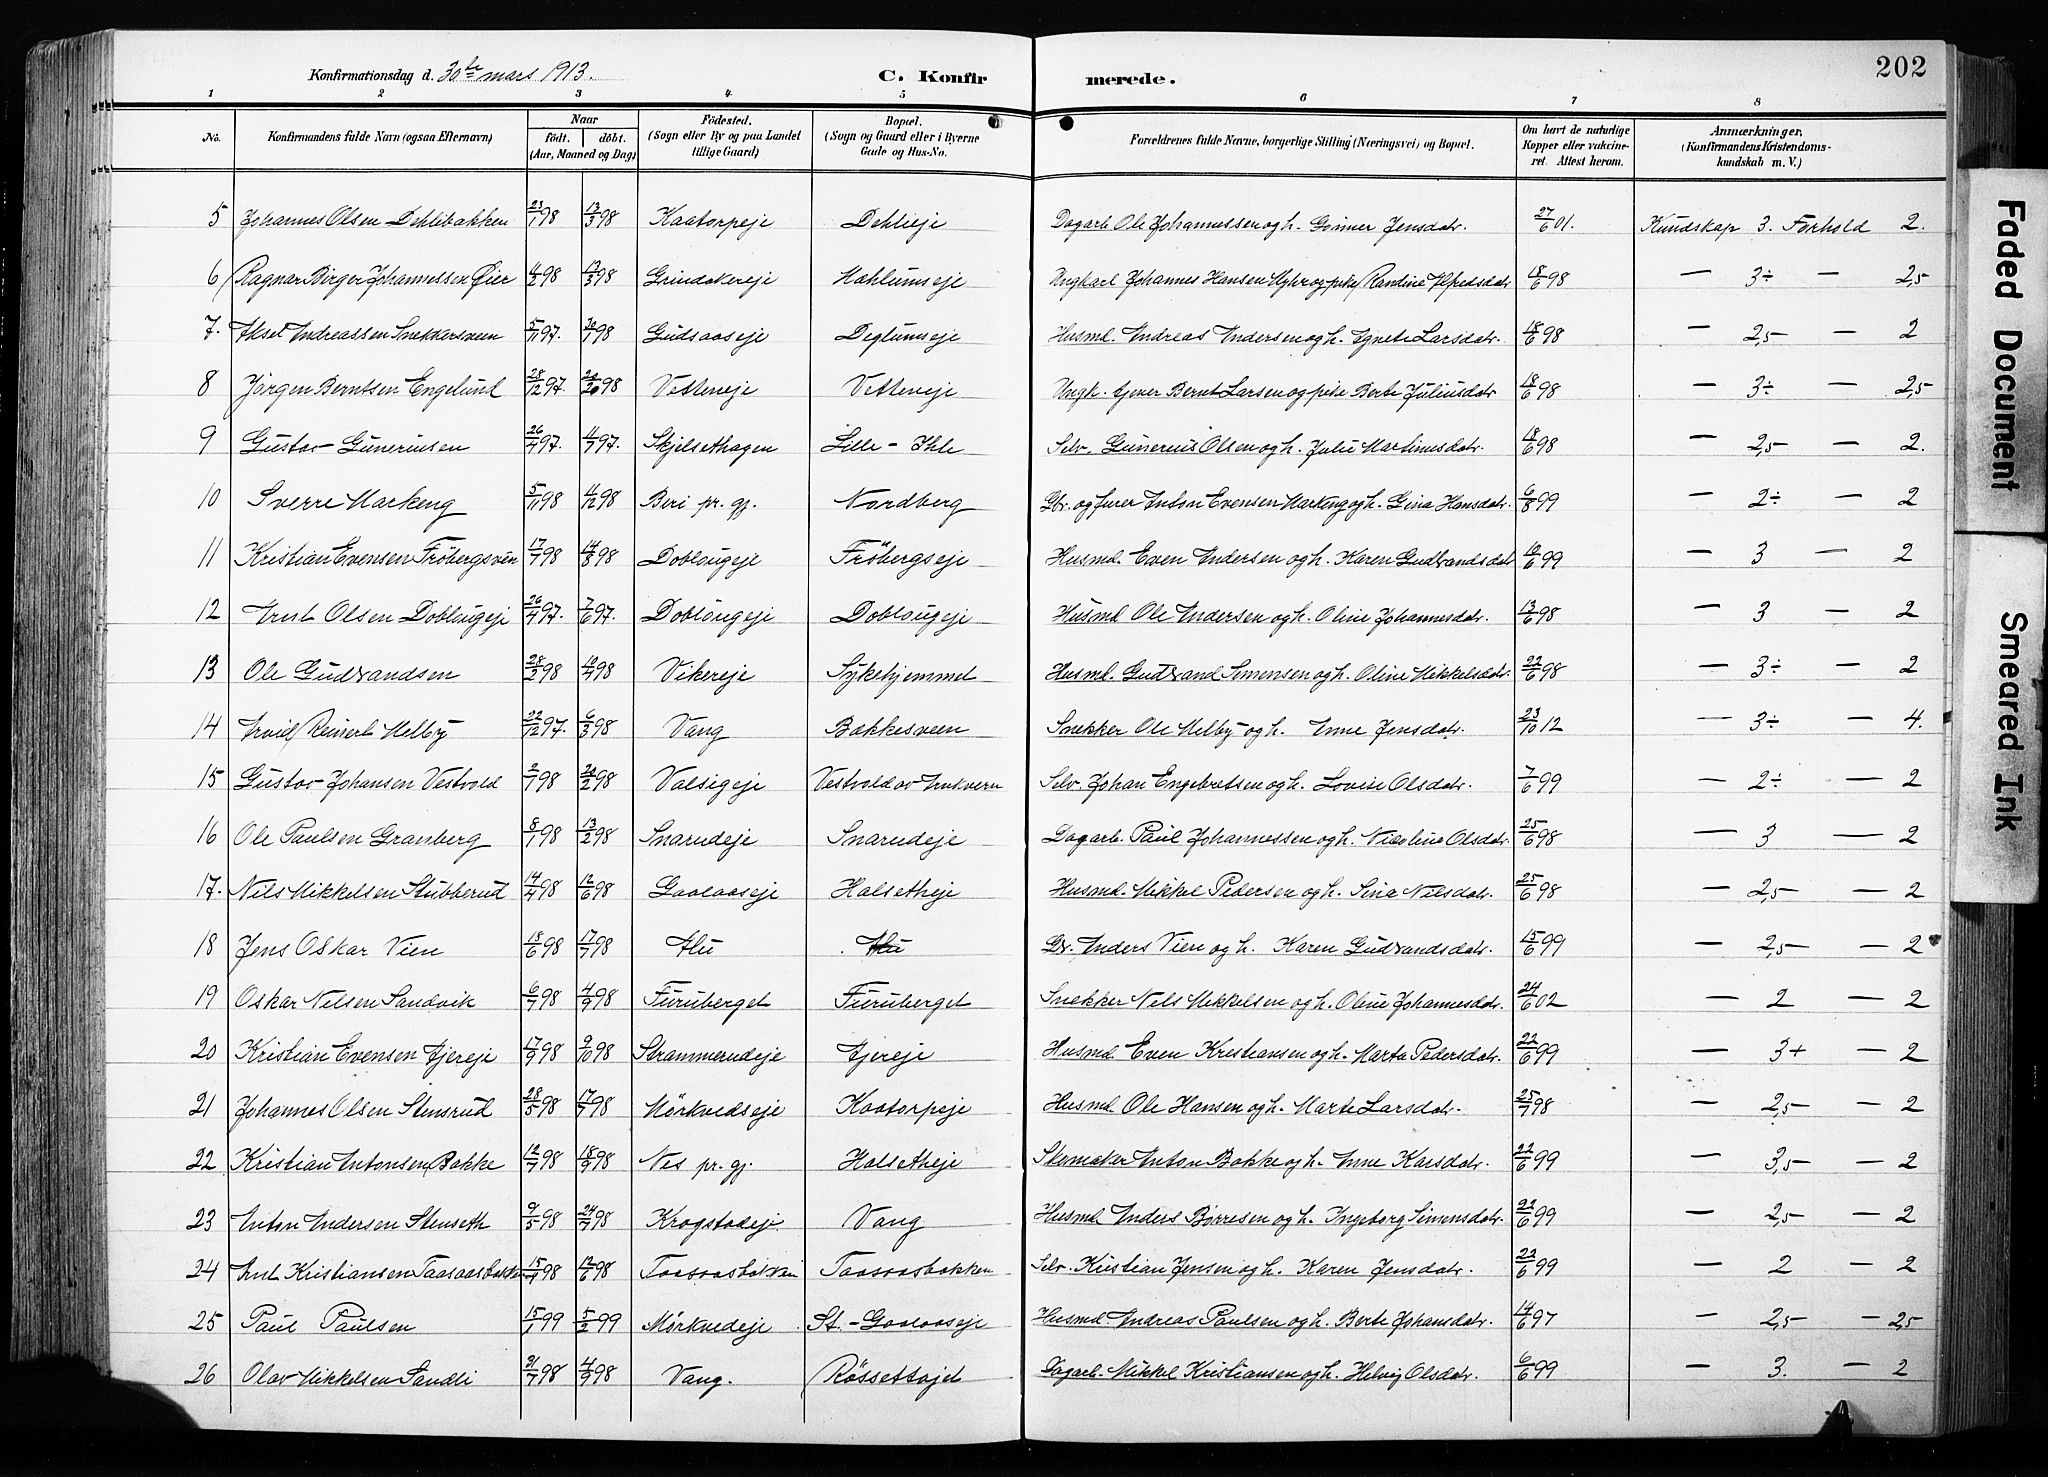 202
Konfirmationsdag d. 30te mars 1913.
C. Konfirmerede.
1 2 3 4 5 6 7 8
No. Konfirmandens fulde Navn (ogsaa Efternavn) Naar født. døbt. (Aar, Maaned og Dag) Fødested. (Sogn eller By og paa Landet tillige Gaard) Bopæl. (Sogn og Gaard eller i Byerne Gade og Hus-No. Forældrenes fulde Navne, borgerlige Stilling (Næringsvei) og Bopæl. Om havt de naturlige Kopper eller vaccineret. Attest herom. Anmærkninger. (Konfirmandens Kristendomskundskab m. V.)
5 Johannes Olsen Dehlibakken 23/1 98 13/3 98 Kaatorpeje Dehlieje Dagarb. Ole Johannessen og h. Gunner Jensdatr. 27/6 01. Kundskap 3. Forhold 2.
6 Ragnar Birger Johannessen Øier 4/2 98 13/3 98 Grindakereje Mæhlumseje Ungkarl Johannes Hansen Myhr og pike Randine Alfredsdatr 18/6 98 — 3÷ — 2,5
7. Aksel Andreassen Snekkersveen 5/11 97. 30/1 98 Gudsaaseje Deglumseje Husmd. Andreas Andersen og h. Agnete Larsdatr. 18/6 98 — 2,5 — 2
8 Jørgen Berntsen Engelund 28/12 97. 98 Vetteneje Vetteneje Ungk. Ejner Bernt Larsen og pike Berte Juliusdatr 18/6 98 — 3÷ — 2,5
9 Gustav Guneriusen 26/4 97. 4/7 97. Skjelsethagen Lille-Ihle Selv. Gunerius Olsen og h. Julie Martinusdatr. 18/6 98 — 2,5 — 2.
10 Sverre Markeng 5/11 98 4/12 98 Beri pr. gj. Nordberg Gbr. og furer Anton Evensen Markeng og h. Gina Hansdatr. 6/8 99 — 2÷ — 2
11 Kristian Evensen Frøbergsven 17/7 98 14/8 98 Doblougeje Frøbergseje Husmd. Even Andersen og h. Karen Gudbrandsdatr 16/6 99 — 3 — 2
12 Arnt Olsen Doblougeje 26/4 97. 7/6 97. Doblougeje Doblougeje Husmd Ole Andersen og h. Oline Johannesdatr. 13/6 98 — 3 — 2
13 Ole Gudbrandsen 28/2 98 10/4 98 Vikereje Sykehjemmet Husmd. Gudbrand Simensen og h. Oline Mikkelsdatr. 22/6 98 — 3÷ — 2
14 Arvid Reinert Melby 22/12 97. 6/3 98 Vang Bakkesveen Snekker Ole Melby og h. Anne Jensdatr. 23/10 12 — 3÷ — 4.
15 Gustav Johansen Vestvold 2/1 98 20/2 98 Valsigeje Vestvold av Ankvern Selv. Johan Engebretsen og h. Lovise Olsdatr. 7/6 99 — 2÷ — 2
16 Ole Paulsen Granberg 8/1 98 13/2 98 Snarudeje Snarudeje Dagarb. Paul Johannessen og h. Nicoline Olsdatr. 25/6 98 — 3 — 2
17. Nils Mikkelsen Stubberud 14/4 98 12/6 98 Gaalaaseje Halsetheje Husmd. Mikkel Pedersen og h. Sina Nilsdatr. 25/6 98 — 2,5 — 2
18 Jens Oskar Vien 18/6 98 17/7 98 Alu Alu Gb. Anders Vien og h. Karen Gudbrandsdatr. 15/6 99 — 2,5 — 2
19 Oskar Nilsen Sandvik 6/7 98 4/9 98 Furuberget Furuberget Snekker Nils Mikkelsen og h. Oline Johannesdatr. 24/6 02 — 2 — 2
20 Kristian Evensen Ajereje 17/9 98 9/10 98 Strammerudeje Ajereje Husmd. Even Kristiansen og h. Marte Pedersdatr. 22/6 99 — 3+ — 2
21 Johannes Olsen Stensrud 28/5 98 17/7 98 Mørkvedseje Kaatorpeje Husmd. Ole Hansen og h. Marte Larsdatr. 25/7 98 — 2,5 — 2
22 Kristian Antonsen Bakke 12/7 98 18/9 98 Nes pr. gj. Halsetheje Skomaker Anton Bakke og h. Anne Larsdatr. 22/6 99 — 3,5 — 2
23 Anton Andersen Stenseth 9/5 98 24/7 98 Krogstadeje Vang Husmd Anders Børresen og h. Ingeborg Simensdatr. 22/6 99 — 2,5 — 2
24 Arnt Kristiansen Taasaasbakken 15/4 98 12/6 98 Taasaasbakken Taasaasbakken Selv. Kristian Jensen og h. Karen Jensdatr. 22/6 99 — 2 — 2
25 Paul Paulsen 15/1 99 5/2 99 Mørkvedeje St.-Gaalaaseje Husmd Andreas Paulsen og h. Berte Johansdatr. 14/6 97 — 2,5 — 2,5
26 Olav Mikkelsen Sandli 31/7 98 4/9 98 Vang. Røssethøjet Dagarb. Mikkel Kristiansen og h. Helvig Olsdatr. 6/6 99 — 3. — 2
Faded Document
Smeared Ink